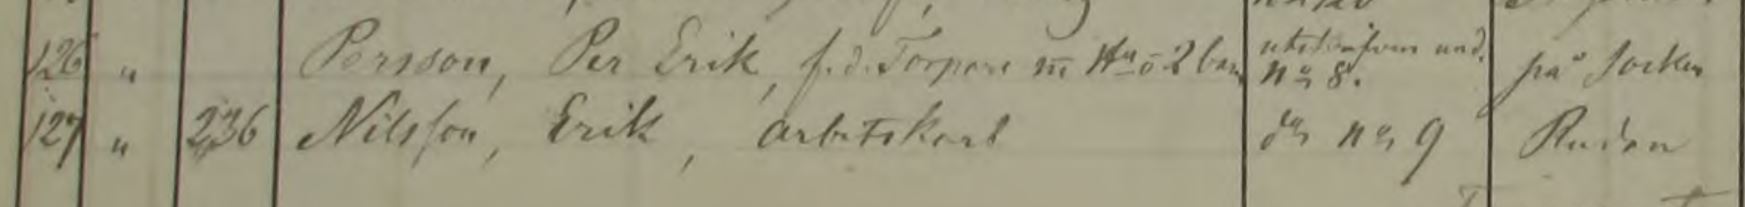 126 " Persson, Per Erik, f.d. Torpare m Hu o 2 barn
no 8. på Socken
127 " 236 Nilsson, Erik, arbetskarl do no 9 Ruden